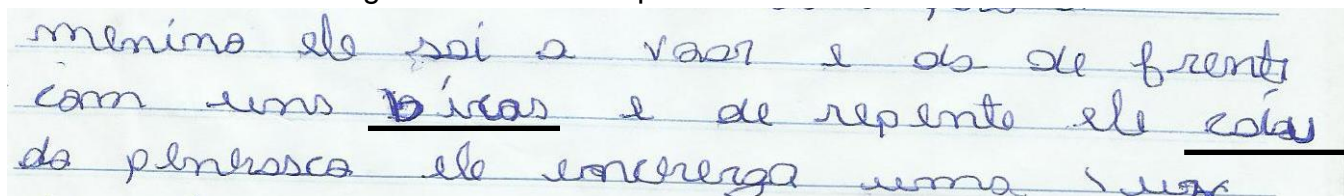 menino ele sai a vaar e da de frente
com uns bicos e de repente ele caiu
do penhasco ele encherga uma